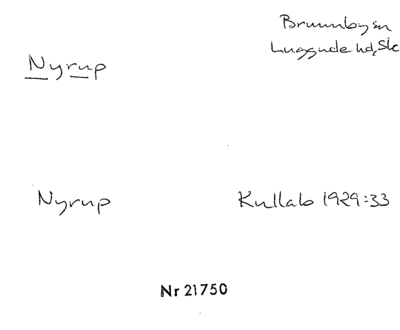 Nyrup
Brunnby sn
Luggude hd, Sk
Nyrup
Kullab 1929:33
Nr 21750